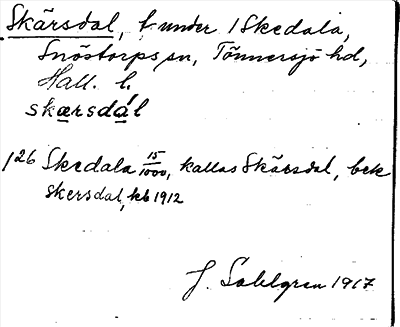 Skärsdal, t. under 1 Skedala,
Snöstorps sn, Tönnersjö hd,
Hall. l.
skærsdál
1²⁶ Skedala 15/1000, kallas Skärsdal, bek
skersdal, kb 1912
J. Sahlgren 1917